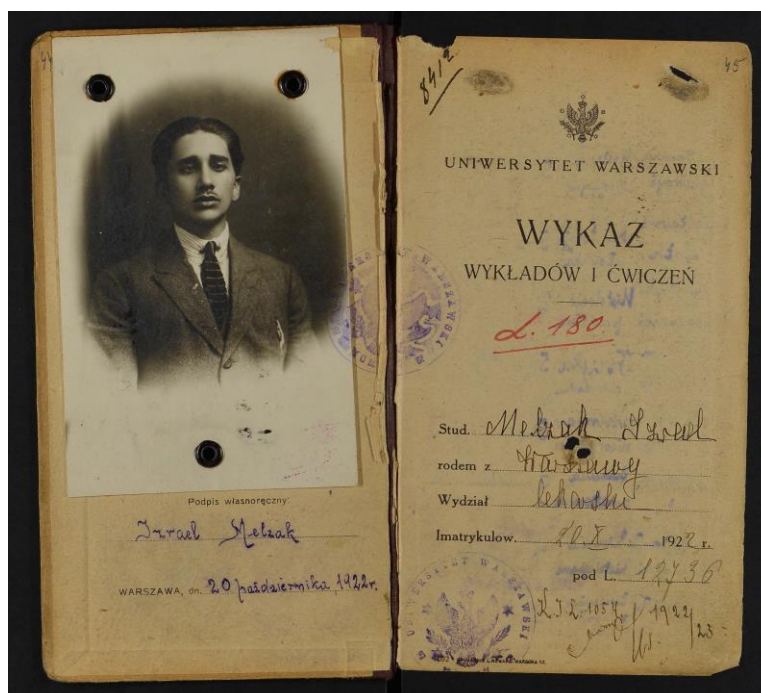 44
Podpis własnoręczny:
Izrael Melzak
WARSZAWA, dn. 20 października, 1922r.
8412
45
UNIWERSYTET WARSZAWSKI
WYKAZ
WYKŁADÓW I ĆWICZEŃ
L. 180.
Stud. Melzak Izrael
rodem z Warszawy
Wydział lekarski
Imatrykulow. 20.X 1922 r.
pod L. 12736
1922/23
UNIWERSYTET WARSZAWSKI